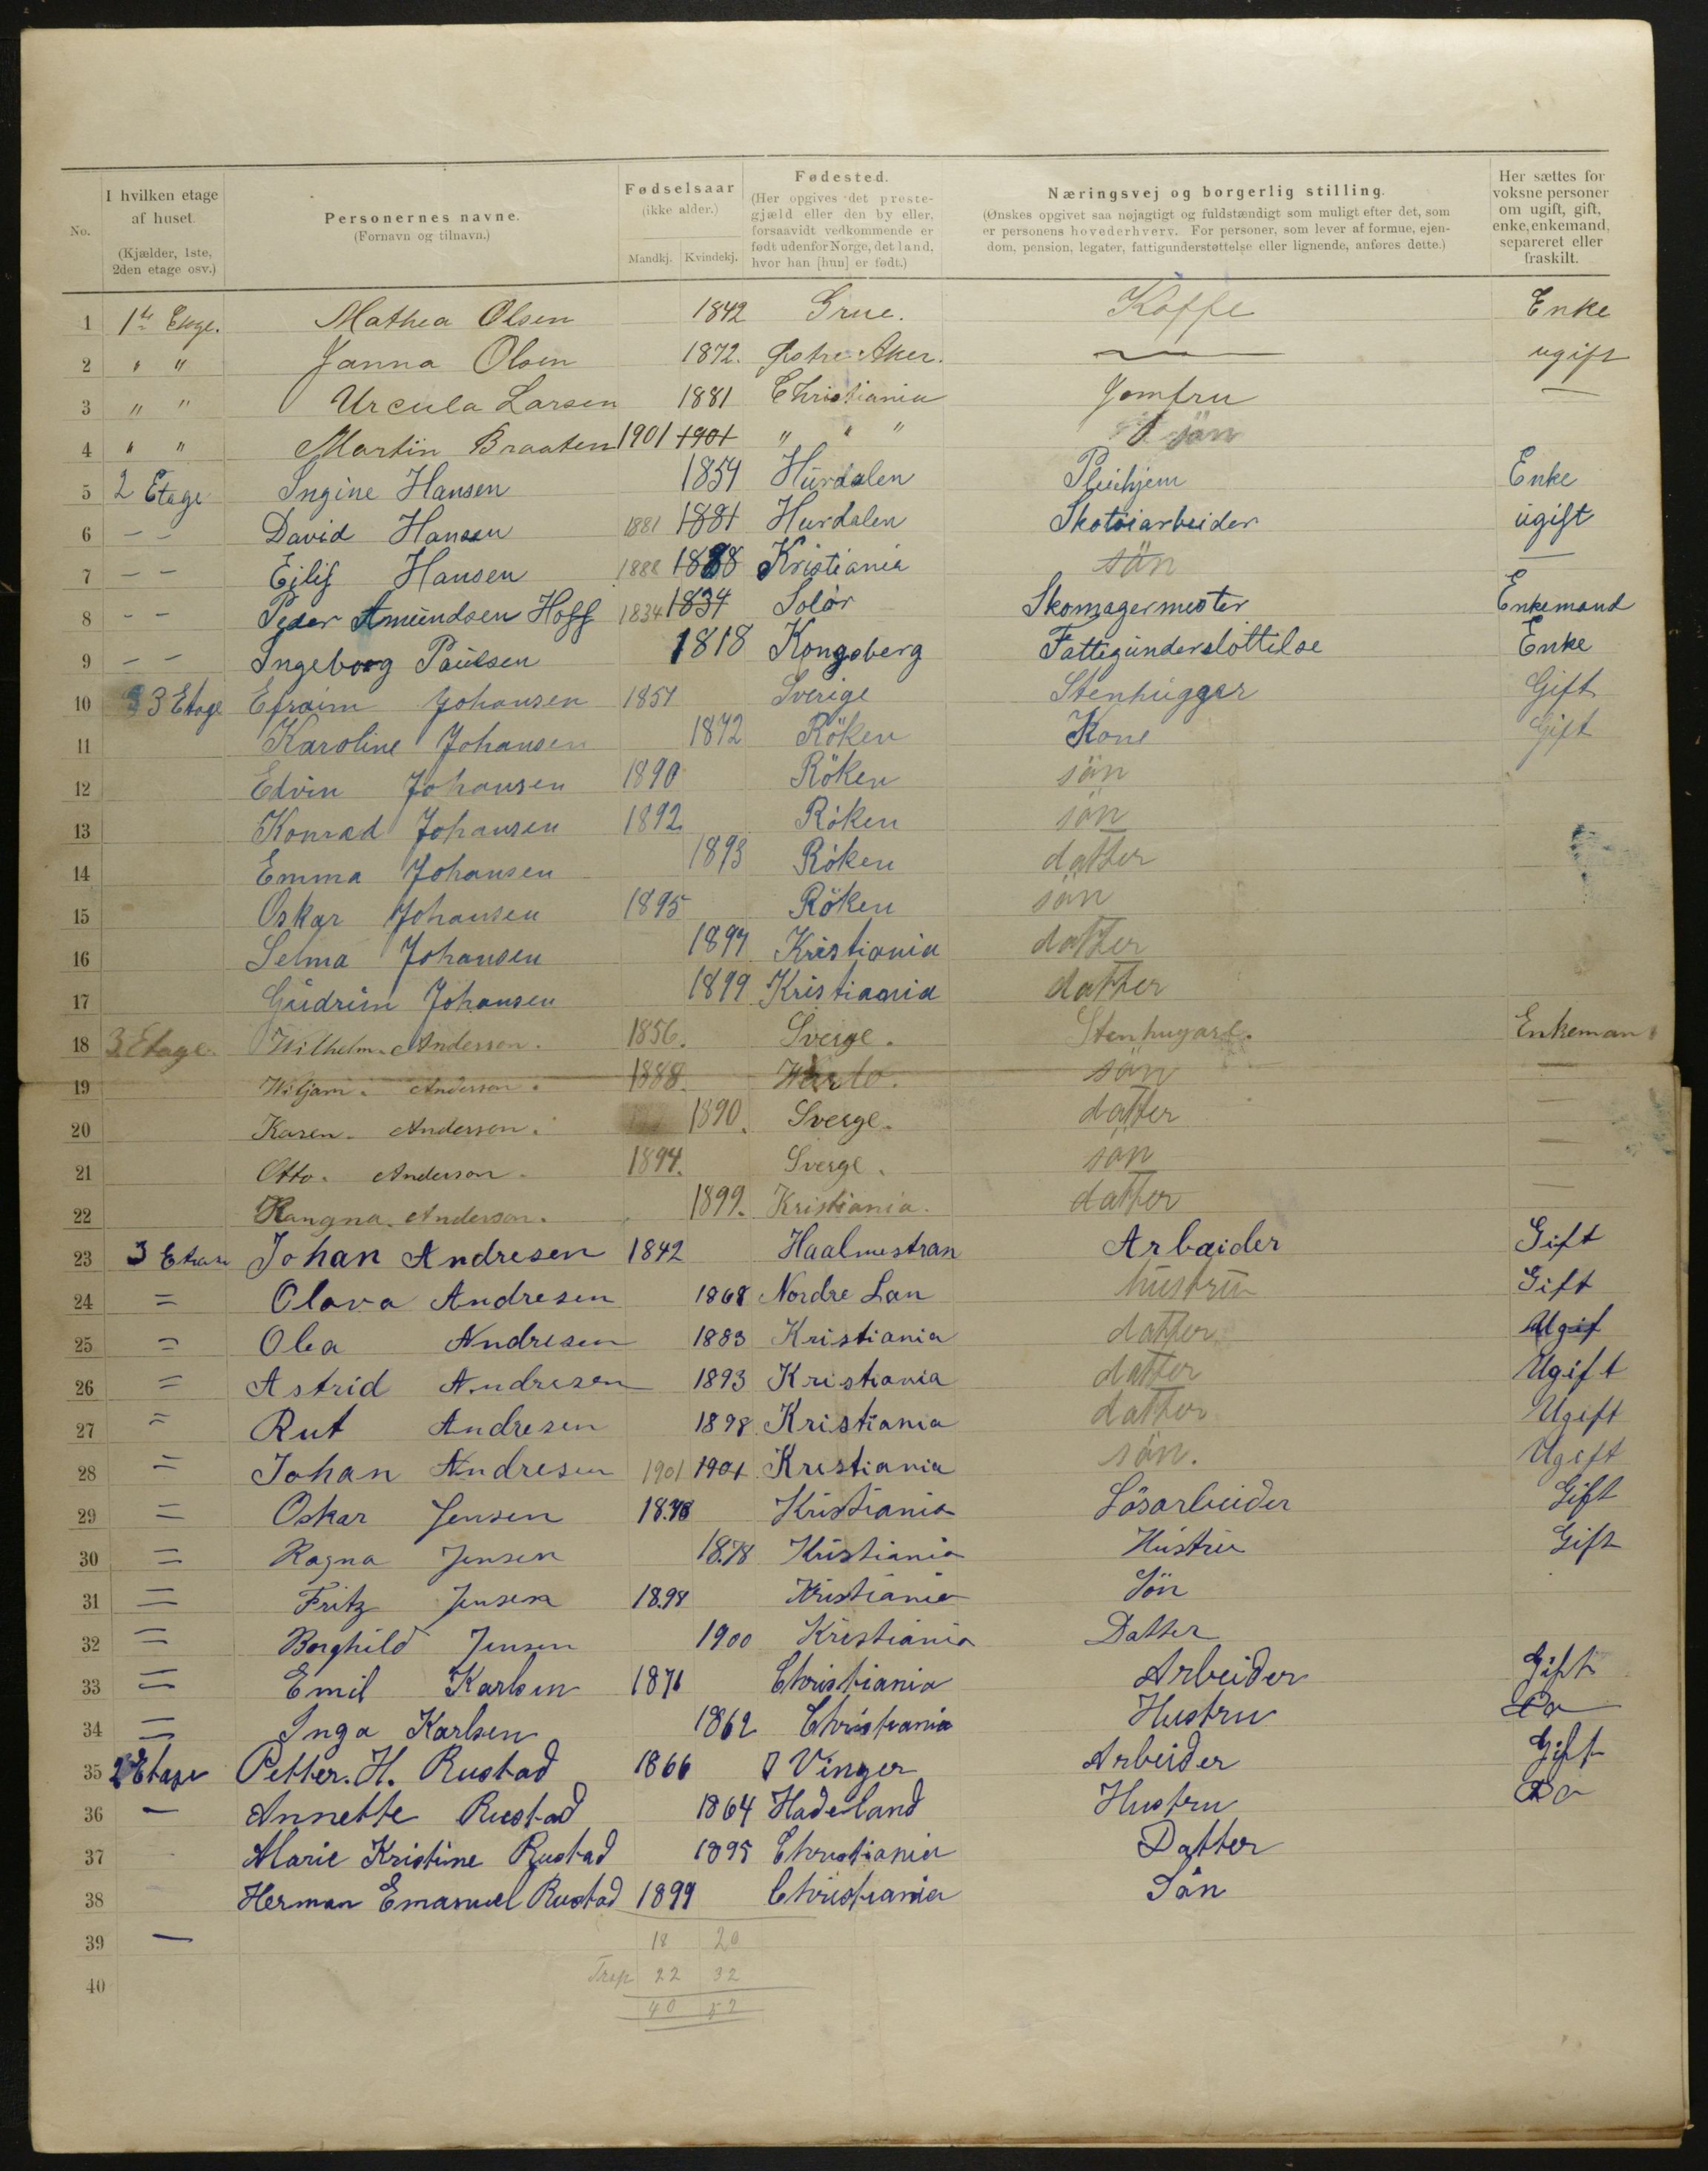 No.
I hvilken etage af huset. (Kjælder, 1ste, 2den etage osv.)
Personernes navne. (Fornavn og tilnavn.)
Fødselsaar (ikke alder.) Mandkj. Kvindekj.
Fødested. (Her opgives det prestegjæld eller den by eller, forsaavidt vedkommende er født udenfor Norge, det land, hvor han [hun] er født.)
Næringsvej og borgerlig stilling. (Ønskes opgivet saa nøjagtigt og fuldstændigt som muligt efter det, som er personens hovederhverv. For personer, som lever af formue, ejendom, pension, legater, fattigunderstøttelse eller lignende, anføres dette.)
Her sættes for voksne personer om ugift, gift, enke, enkemand, separeret eller fraskilt.
1 1ste Etage. Mathea Olsen 1842 Grue. Kaffe Enke
2 " " Janna Olsen 1872. Østre Aker. — ugift
3 " " Urcula Larsen 1881 Christiania Jomfru —
4 " " Martin Braaten 1901 1901 " " " sön
5 2 Etage Ingine Hansen 1854 Hurdalen Pleiehjem Enke
6 - - David Hansen 1881 1881 Hurdalen Skotöiarbeider ugift
7 - - Eilif Hansen 1888 1888 Kristiania sön —
8 - - Peder Amundsen Hoff 1834 1834 Solör Skomagermester Enkemand
9 - - Ingeborg Paulsen 1818 Kongsberg Fattigunderstöttilse Enke
10 3 Etage Efraim Johansen 1854 Sverige Stenhugger Gift
11 Karoline Johansen 1872 Röken Kone Gift
12 Edvin Johansen 1890 Röken sön
13 Konrad Johansen 1892 Röken sön
14 Emma Johansen 1893 Röken datter
15 Oskar Johansen 1895 Röken sön
16 Selma Johansen 1897 Kristiania datter
17 Gudrun Johansen 1899 Kristiania datter
18 3 Etage. Wilhelm. Anderson. 1856. Sverge. Stenhugare. Enkeman
19 Wiljam. Anderson. 1888. sön —
20 Karen. Anderson. 1890. Sverge. datter —
21 Otto. Anderson. 1894. Sverge. sön —
22 Rangna. Anderson. 1899. Kristiania. datter —
23 3 Etase Johan Andresen 1842 Haalmestran Arbaider Gift
24 = Olava Andresen 1868 Nordre Lan hustru Gift
25 = Olea Andresen 1883 Kristiania datter Ugif
26 = Astrid Andresen 1893 Kristiania datter Ugift
27 = Rut Andresen 1898 Kristiania datter Ugift
28 = Johan Andresen 1901 1901 Kristiania sön. Ugift
29 = Oskar Jensen 1878 Kristiania Lösarbeider Gift
30 = Ragna Jensen 1878 Kristiania Hustru Gift
31 = Fritz Jensen 1898 Kristiania Sön
32 = Borghild Jensen 1900 Kristiania Datter
33 = Emil Karlsen 1871 Christiania Arbeider Gift
34 = Inga Karlsen 1862 Christiania Hustru Do
35 2 Etage Petter. H. Rustad 1866 Vinger Arbeider Gift
36 — Annette Rustad 1864 Hadeland Hustru Do
37 Marie Kristine Rustad 1895 Christiania Datter
38 Herman Emanuel Rustad 1899 Christiania Sön
39 — 18 20
40 Trsp 22 32
40 52